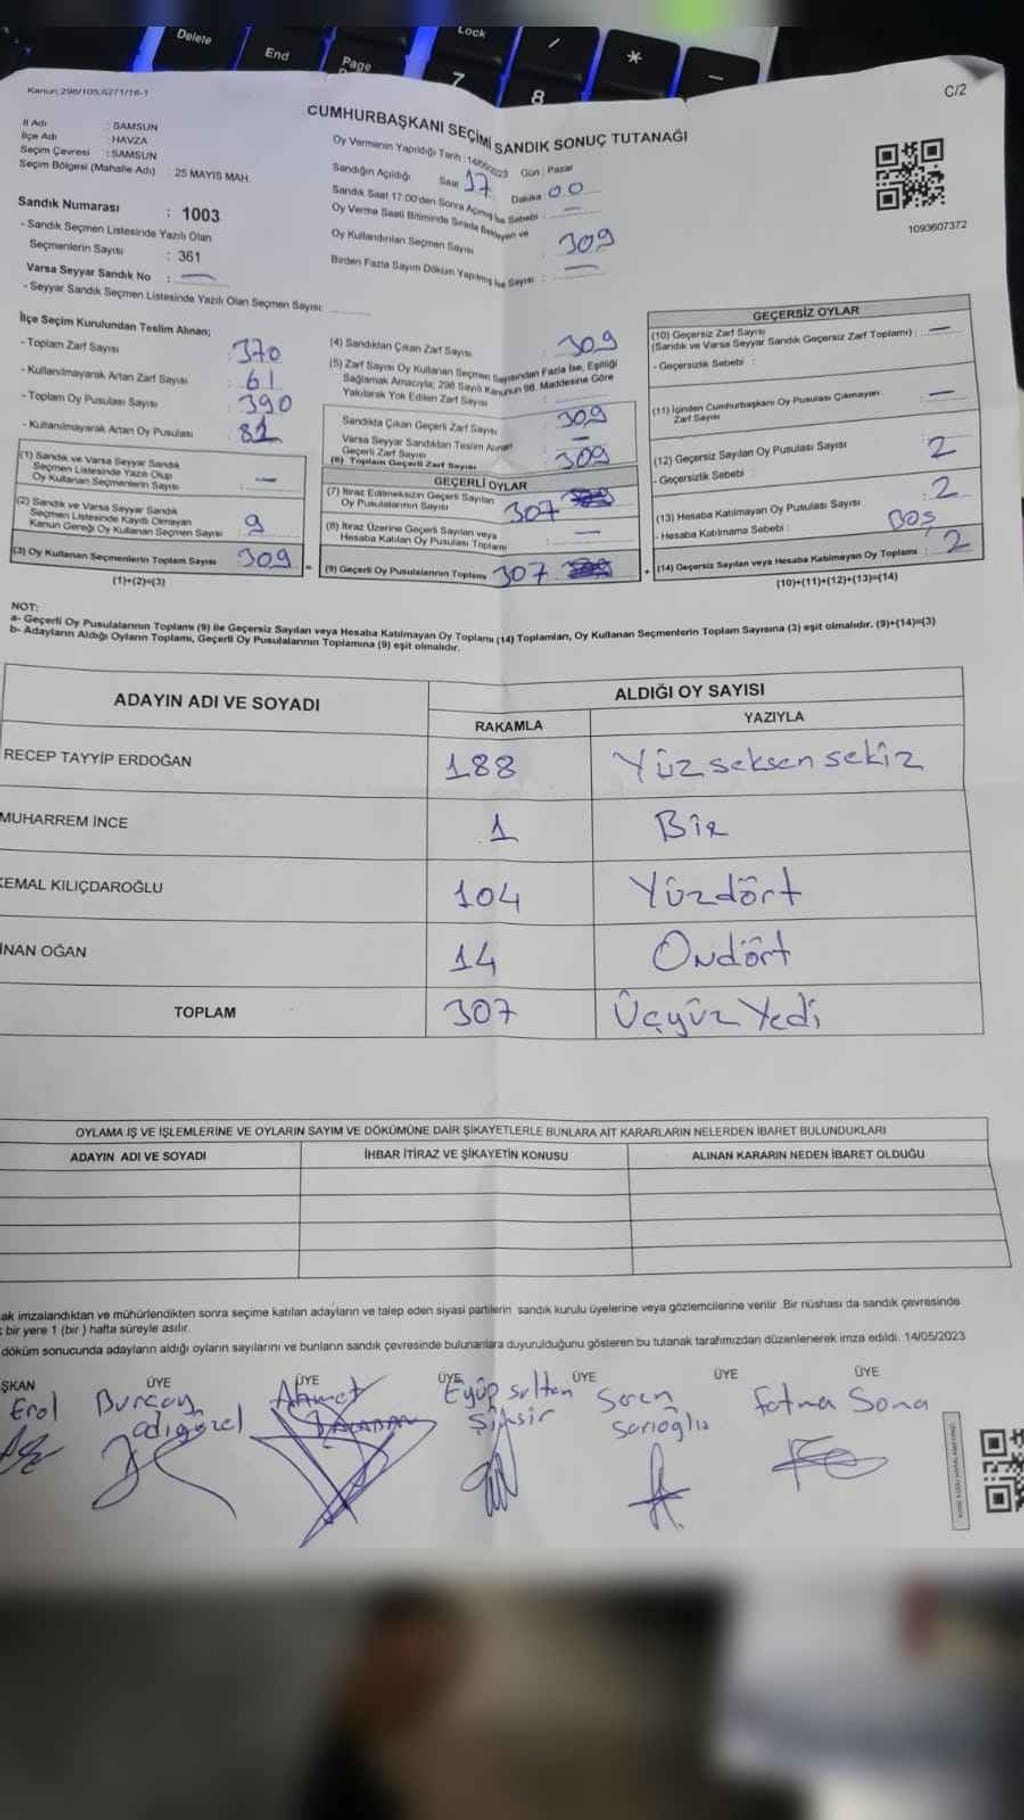 Delete
End
Page
Lock
7
8
/
*
Kanun:298/105,6271/18-1
C/2
CUMHURBAŞKANI SEÇİMİ SANDIK SONUÇ TUTANAĞI
İl Adı : SAMSUN
İlçe Adı : HAVZA
Seçim Çevresi : SAMSUN
Seçim Bölgesi (Mahalle Adı) : 25 MAYIS MAH.
Sandık Numarası : 1003
- Sandık Seçmen Listesinde Yazılı Olan
Seçmenlerin Sayısı : 361
Varsa Seyyar Sandık No : —
- Seyyar Sandık Seçmen Listesinde Yazılı Olan Seçmen Sayısı:
Oy Vermenin Yapıldığı Tarih : 14/05/2023 Gün : Pazar
Sandığın Açıldığı Saat 17 Dakika 00
Sandık Saat 17:00'den Sonra Açılmış İse Sebebi : —
Oy Verme Saati Bitiminde Sırada Bekleyen ve
Oy Kullandırılan Seçmen Sayısı : 309
Birden Fazla Sayım Döküm Yapılmış İse Sayısı : —
1093607372
İlçe Seçim Kurulundan Teslim Alınan;
- Toplam Zarf Sayısı : 370
- Kullanılmayarak Artan Zarf Sayısı : 61
- Toplam Oy Pusulası Sayısı : 390
- Kullanılmayarak Artan Oy Pusulası : 81
(1) Sandık ve Varsa Seyyar Sandık
Seçmen Listesinde Yazılı Olup
Oy Kullanan Seçmenlerin Sayısı : —
(2) Sandık ve Varsa Seyyar Sandık
Seçmen Listesinde Kayıtlı Olmayan
Kanun Gereği Oy Kullanan Seçmen Sayısı : 9
(3) Oy Kullanan Seçmenlerin Toplam Sayısı : 309
(1)+(2)=(3)
(4) Sandıktan Çıkan Zarf Sayısı : 309
(5) Zarf Sayısı Oy Kullanan Seçmen Sayısından Fazla İse, Eşitliği
Sağlamak Amacıyla; 298 Sayılı Kanunun 98. Maddesine Göre
Yakılarak Yok Edilen Zarf Sayısı :
Sandıkta Çıkan Geçerli Zarf Sayısı : 309
Varsa Seyyar Sandıktan Teslim Alınan
Geçerli Zarf Sayısı : —
(6) Toplam Geçerli Zarf Sayısı : 309
GEÇERLİ OYLAR
(7) İtiraz Edilmeksizin Geçerli Sayılan
Oy Pusulalarının Sayısı : 307
(8) İtiraz Üzerine Geçerli Sayılan veya
Hesaba Katılan Oy Pusulası Toplamı : —
(9) Geçerli Oy Pusulalarının Toplamı : 307
GEÇERSİZ OYLAR
(10) Geçersiz Zarf Sayısı
(Sandık ve Varsa Seyyar Sandık Geçersiz Zarf Toplamı) : —
- Geçersizlik Sebebi :
(11) İçinden Cumhurbaşkanı Oy Pusulası Çıkmayan
Zarf Sayısı : —
(12) Geçersiz Sayılan Oy Pusulası Sayısı : 2
- Geçersizlik Sebebi :
(13) Hesaba Katılmayan Oy Pusulası Sayısı : 2
- Hesaba Katılmama Sebebi : BOŞ
(14) Geçersiz Sayılan veya Hesaba Katılmayan Oy Toplamı : 2
(10)+(11)+(12)+(13)=(14)
NOT:
a- Geçerli Oy Pusulalarının Toplamı (9) ile Geçersiz Sayılan veya Hesaba Katılmayan Oy Toplamı (14) Toplamları, Oy Kullanan Seçmenlerin Toplam Sayısına (3) eşit olmalıdır. (9)+(14)=(3)
b- Adayların Aldığı Oyların Toplamı, Geçerli Oy Pusulalarının Toplamına (9) eşit olmalıdır.
ADAYIN ADI VE SOYADI
ALDIĞI OY SAYISI
RAKAMLA YAZIYLA
RECEP TAYYİP ERDOĞAN 188 Yüzseksensekiz
MUHARREM İNCE 1 Bir
KEMAL KILIÇDAROĞLU 104 Yüzdört
İNAN OĞAN 14 Ondört
TOPLAM 307 ÜçyüzYedi
OYLAMA İŞ VE İŞLEMLERİNE VE OYLARIN SAYIM VE DÖKÜMÜNE DAİR ŞİKAYETLERLE BUNLARA AİT KARARLARIN NELERDEN İBARET BULUNDUKLARI
ADAYIN ADI VE SOYADI İHBAR İTİRAZ VE ŞİKAYETİN KONUSU ALINAN KARARIN NEDEN İBARET OLDUĞU
ak imzalandıktan ve mühürlendikten sonra seçime katılan adayların ve talep eden siyasi partilerin sandık kurulu üyelerine veya gözlemcilerine verilir. Bir nüshası da sandık çevresinde
bir yere 1 (bir) hafta süreyle asılır.
döküm sonucunda adayların aldığı oyların sayılarını ve bunların sandık çevresinde bulunanlara duyurulduğunu gösteren bu tutanak tarafımızdan düzenlenerek imza edildi. 14/05/2023
ŞKAN ÜYE ÜYE ÜYE ÜYE ÜYE ÜYE
Erol
Burçay
adıgüzel
Ahmet
BALABAN
Eyüp sultan
Seren
Sarıoğlu
Fatma Sona